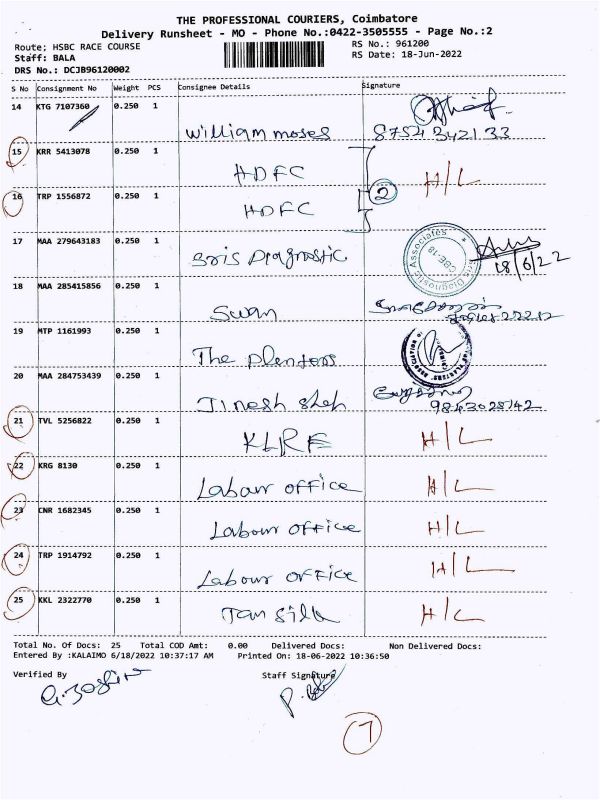 THE PROFESSIONAL COURIERS, Coimbatore
Delivery Runsheet - MO - Phone No.:0422-3505555 - Page No.:2
Route: HSBC RACE COURSE RS No.: 961200
Staff: BALA RS Date: 18-Jun-2022
DRS No.: DCJB96120002
S No Consignment No Weight PCS Consignee Details Signature
14 KTG 7107360 0.250 1
William moses 8754342133
15 KRR 5413078 0.250 1
HDFC H/L
16 TRP 1556872 0.250 1 2
HDFC
17 MAA 279643183 0.250 1
Diagnostic 18/6/22
18 MAA 285415856 0.250 1
Swan
19 MTP 1161993 0.250 1
The plenters
20 MAA 284753439 0.250 1
Jinesh sheh 9843028142
21 TVL 5256822 0.250 1
KLRF H/L
22 KRG 8130 0.250 1
Labour office H/L
23 CNR 1682345 0.250 1
Labour office H/L
24 TRP 1914792 0.250 1
Labour office H/L
25 KKL 2322770 0.250 1
Tan Silk H/L
Total No. Of Docs: 25 Total COD Amt: 0.00 Delivered Docs: Non Delivered Docs:
Entered By :KALAIMO 6/18/2022 10:37:17 AM Printed On: 18-06-2022 10:36:50
Verified By Staff Signature
7